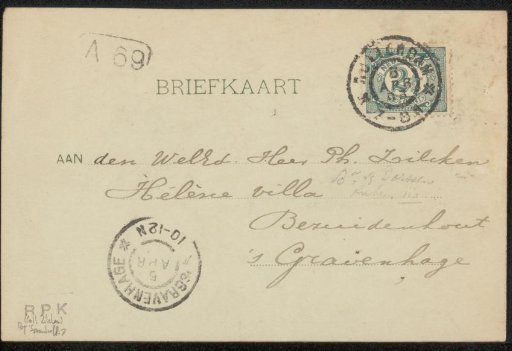 A 69
BRIEFKAART
ROTTERDAM
5
APR
AAN den WelEd. Heer Ph. Zilcken
Hélène villa
Bezuidenhout
's Gravenhage
'SGRAVENHAGE
5
APR
10-12N
R P K